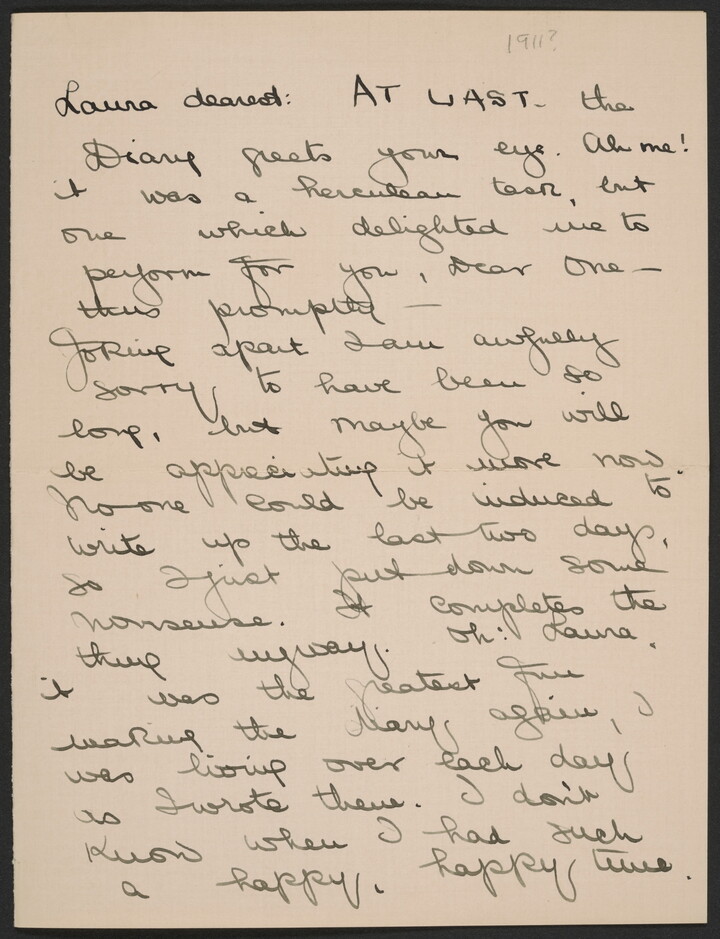 1911?
Laura dearest: AT LAST - the
Diary greets your eye. Ah me!
it was a herculean task, but
one which delighted me to
perform for you, Dear One -
thus promptly -
Joking apart I am awfully
sorry to have been so
long, but maybe you will
be appeciating it more now.
No-one could be induced to
write up the last two days,
so I just put down some
nonsense. It completes the
thing anyway. Oh! Laura,
it was the greatest fun
making the Diary again, I
was living over each day
as I wrote them. I don't
know when I had such
a happy, happy time.